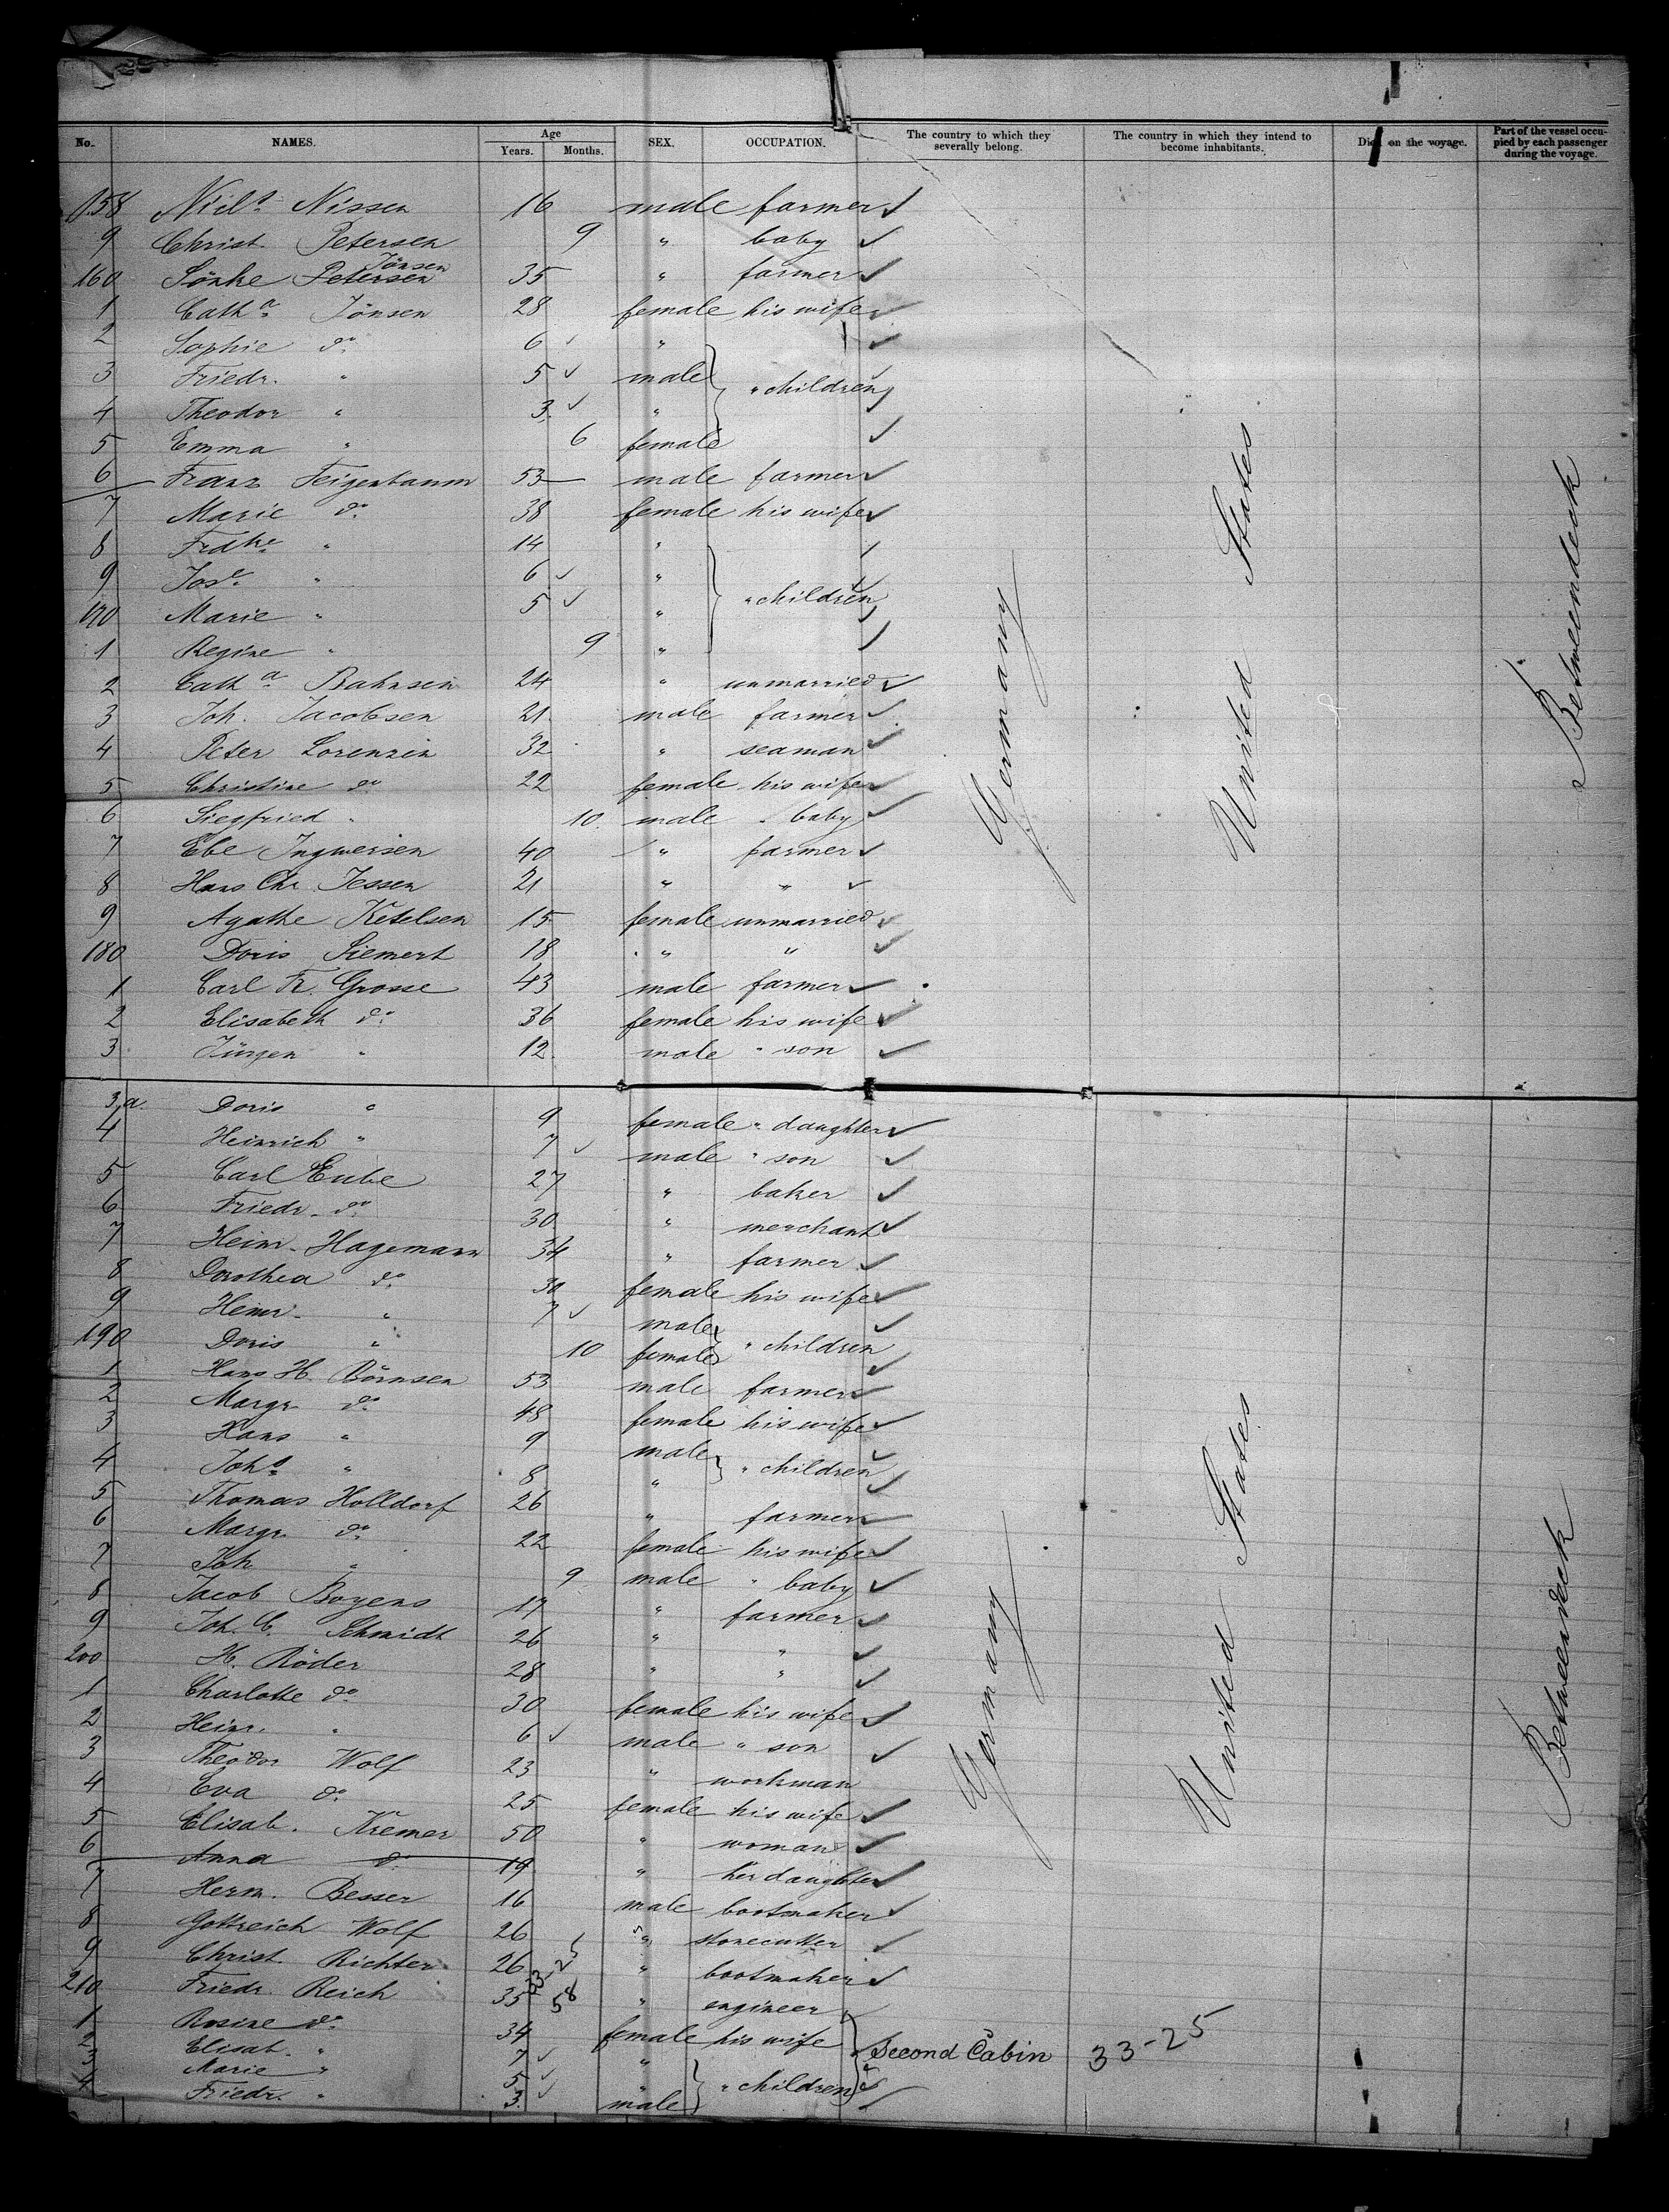 No. NAMES. Age Years. Months. SEX. OCCUPATION. The country to which they severally belong. The country in which they intend to become inhabitants. Died on the voyage. Part of the vessel occupied by each passenger during the voyage.
158 Niels Nissen 16 male farmer
9 Christ. Petersen 9 " baby
160 Sönke Petersen Jönsen 35 " farmer
1 Catha Jönsen 28 female his wife
2 Sophie do 6 "
3 Friedr. " 5 male " children
4 Theodor " 3 "
5 Emma " 6 female
6 Franz Feigenbaum 53 male farmer
7 Marie do 38 female his wife
8 Frdke " 14 "
9 Jose " 6 "
170 Marie " 5 " " children
1 Regine " 9 "
2 Catha Bahnsen 24 " unmarried
3 Joh. Jacobsen 21 male farmer
4 Peter Lorenzen 32 " seaman
5 Christine do 22 female his wife
6 Siegfried " 10 male " baby
7 Ebe Ingwersen 40 " farmer
8 Hans Chr. Jessen 21 " "
9 Agathe Ketelsen 15 female unmarried
180 Doris Siemert 18 " "
1 Carl Fr. Grosse 43 male farmer
2 Elisabeth do 36 female his wife
3 Jürgen " 12 male " son
Germany
United States
Betweendeck
3a. Doris " 9 female " daughter
4 Heinrich " 7 male " son
5 Carl Eube 27 " baker
6 Friedr. do 30 " merchant
7 Heinr. Hagemann 34 " farmer
8 Dorothea do 30 female his wife
9 Heinr. " 7 male
190 Doris " 10 female " children
1 Hans H. Börnsen 53 male farmer
2 Margr. do 48 female his wife
3 Hans " 9 male
4 Johs " 8 " " children
5 Thomas Holldorf 26 " farmer
6 Margr. do 22 female his wife
7 Joh " 9 male " baby
8 Jacob Boyens 17 " farmer
9 Joh. C. Schmidt 26 " "
200 H. Röder 28 " "
1 Charlotte do 30 female his wife
2 Heinr. " 6 male " son
3 Theodor Wolf 23 " workman
4 Eva do 25 female his wife
5 Elisab. Kremer 50 " woman
6 Anna do 19 " her daughter
7 Herm. Besser 16 male bootmaker
8 Gottreich Wolf 26 " stonecutter
9 Christ. Richter 26 " bootmaker
210 Friedr. Reich 35 58 " engineer
1 Rosine do 34 female his wife Second Cabin 33-25
2 Elisab. " 7 "
3 Marie " 5 " " children
4 Friedr. " 3 male
Germany
United States
Betweendeck